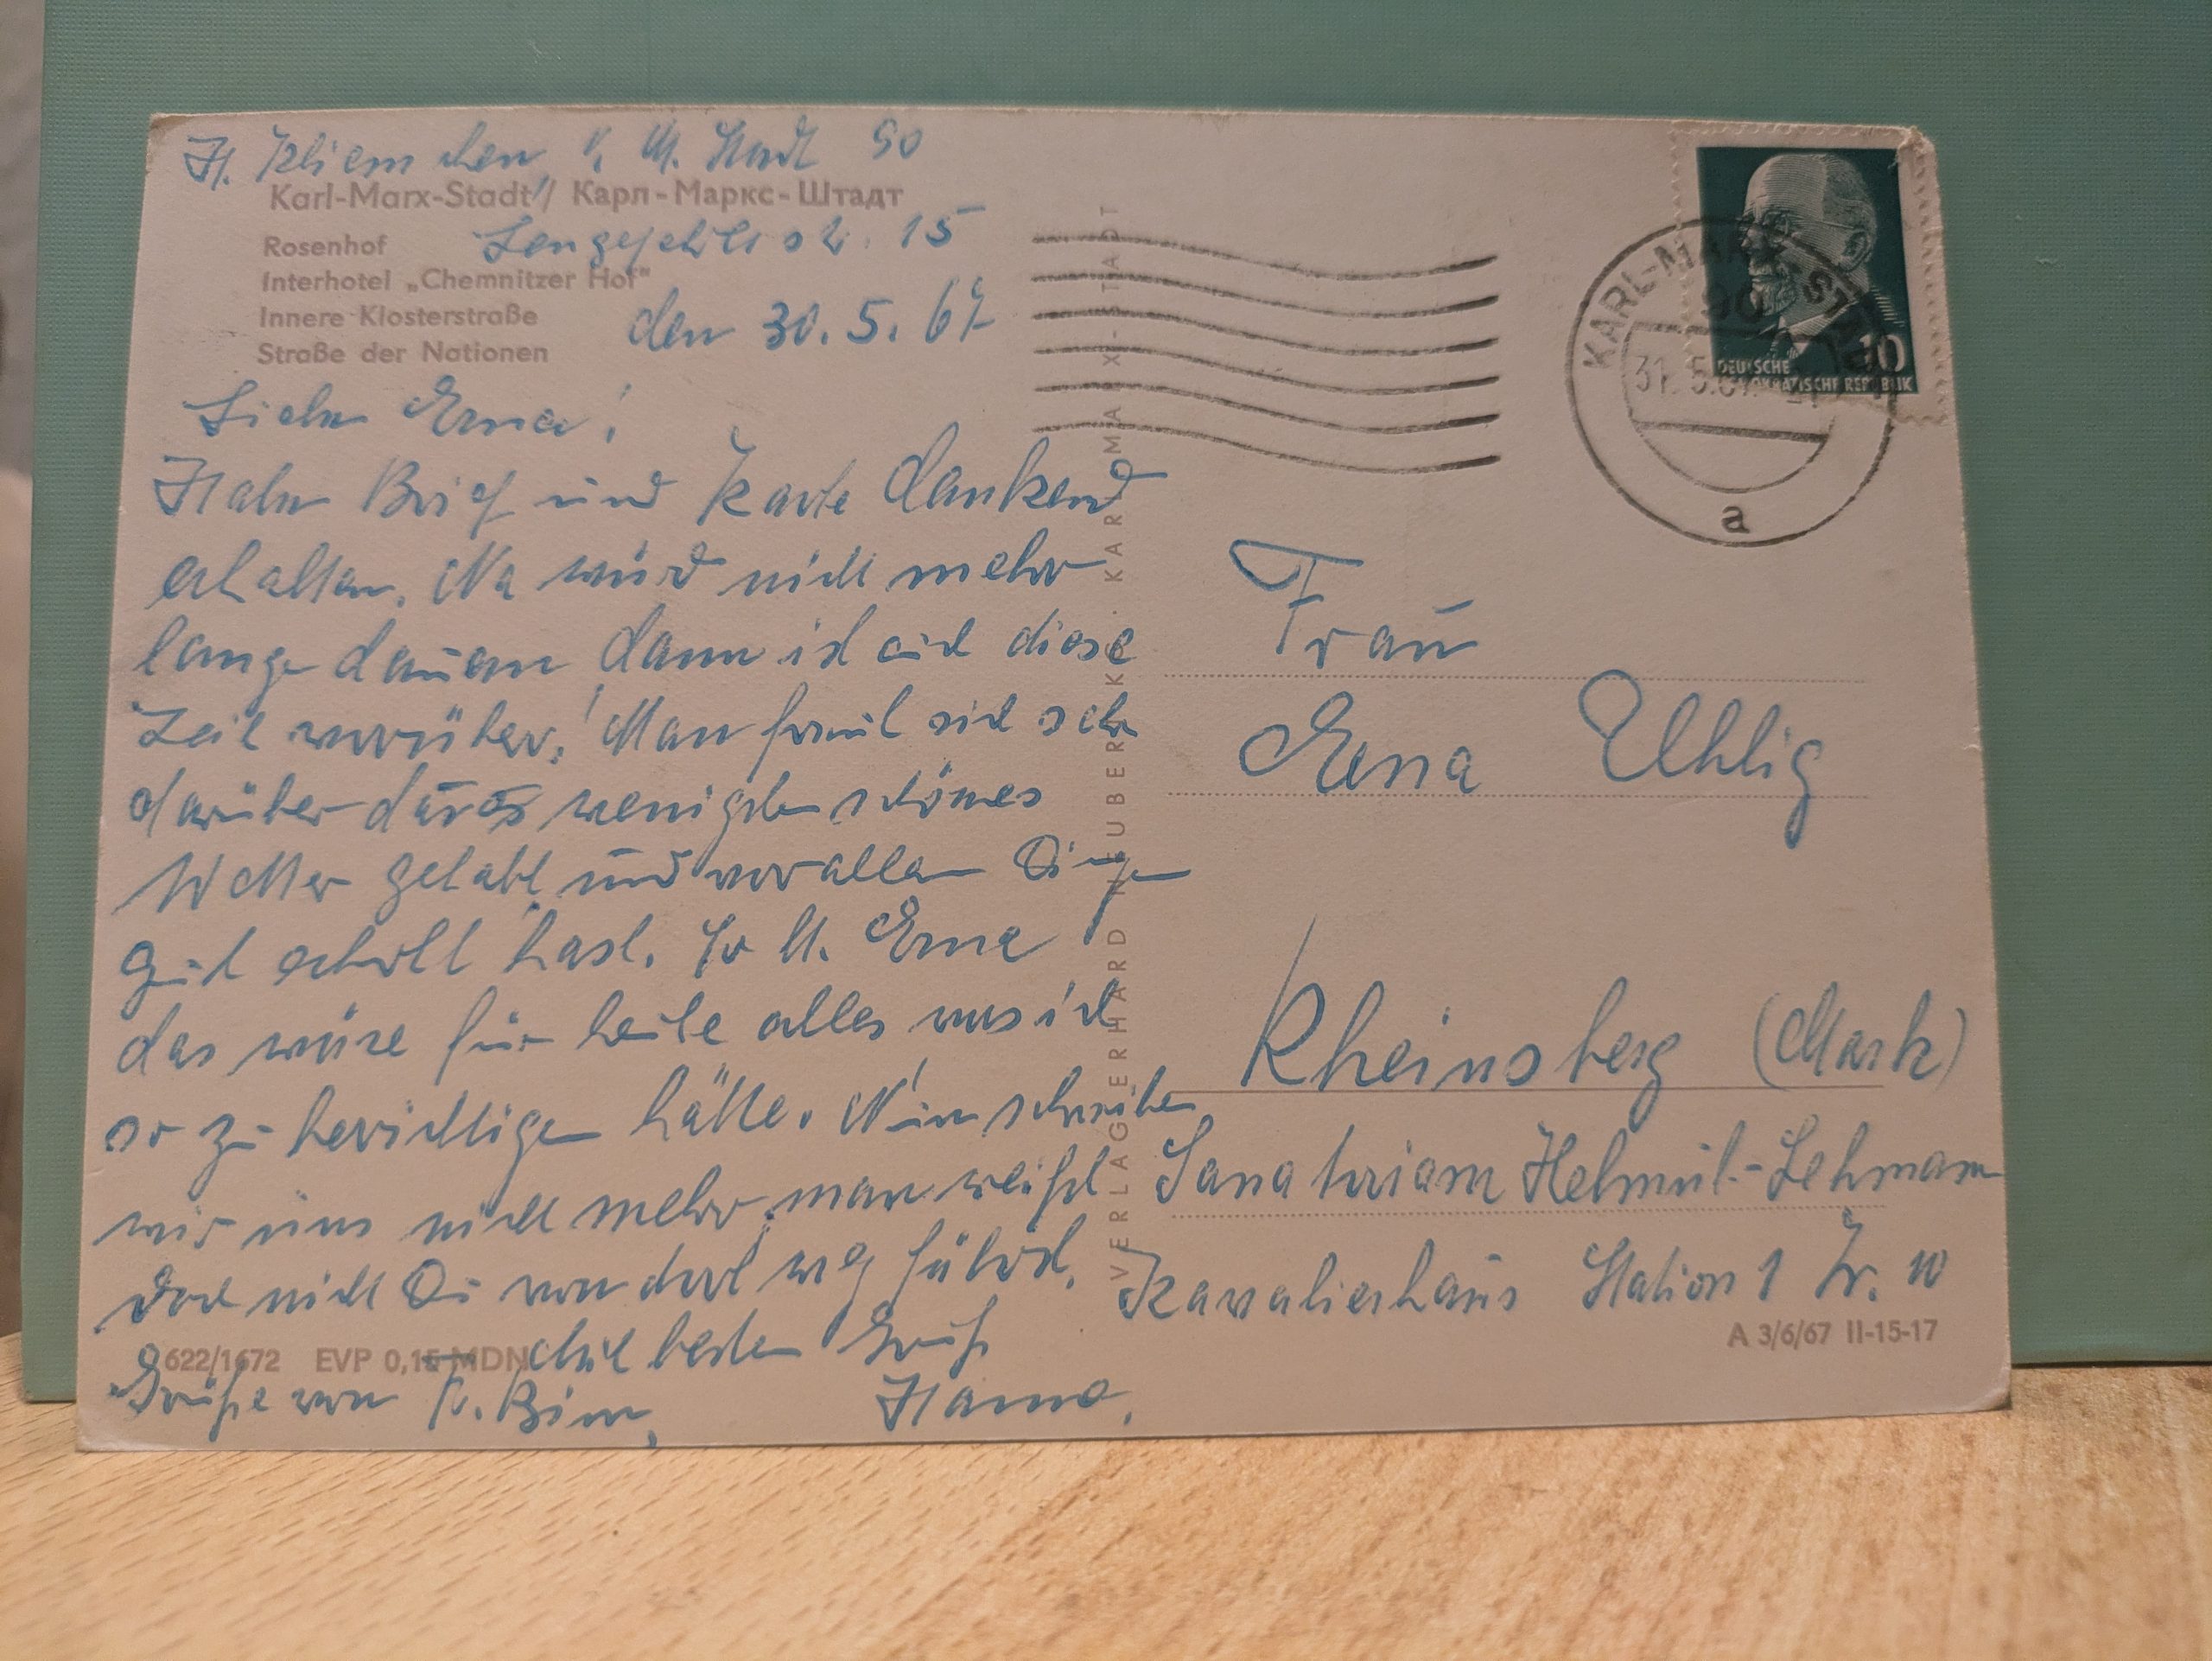 H. Kliemchen, K. M. Stadt 90
Karl-Marx-Stadt / Карл-Маркс-Штадт
Rosenhof
Interhotel „Chemnitzer Hof"
Innere Klosterstraße
Straße der Nationen
str. 15
den 30. 5. 67
Liebe Erna!
Habe Brief und Karte dankend
erhalten. Na wird nicht mehr
lange dauern dann ist auch diese
Zeit vorüber! Man freut sich sehr
darüber das wenigsten schönes
Wetter gehabt und vor allen Dingen
gut erholt hast. So l. Erna
das wäre für heute alles was ich
so zu berichtigen hätte. Nun schreiben
wir uns nicht mehr, man weißt
doch nicht Du von dort weg fährst.
Mit besten Gruß
Grüße von Hanna.
622/1672 EVP 0,15 MDN
VERLAG ERHARD NEUBERT KG. KARL-MARX-STADT
KARL-MARX-STADT
90
31. 5. 67
a
10
DEUTSCHE
DEMOKRATISCHE REPUBLIK
Frau
Erna Uhlig
Rheinsberg (Mark)
Sanatorium Helmut-Lehmann
Kavalierhaus Station 1 Zr. 10
A 3/6/67 II-15-17